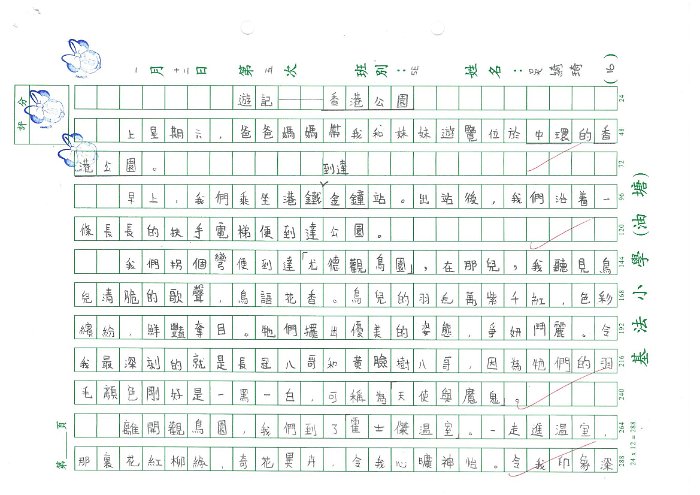 一月十二日 第五次 班別：5E 姓名：吳綺琦(16)
評分
遊記——香港公園 24
上星期六，爸爸媽媽帶我和妹妹遊覽位於中環的香 48
港公園。 72
到達
早上，我們乘坐港鐵金鐘站。出站後，我們沿着一 96
條長長的扶手電梯便到達公園。 120
我們拐個彎便到達「尤德觀鳥園」，在那兒，我聽見鳥 144
兒清脆的歌聲，鳥語花香。鳥兒的羽毛萬紫千紅，色彩 168
繽紛，鮮豔奪目。牠們擺出優美的姿態，爭妍鬥麗。令 192
我最深刻的就是長冠八哥和黃臉樹八哥，因為牠們的羽 216
毛顏色剛好是一黑一白，可稱為天使與魔鬼。 240
離開觀鳥園，我們到了「霍士傑溫室」。一走進溫室， 264
那裏花紅柳綠，奇花異卉，令我心曠神怡。令我印象深 288
第 頁
24 x 12 = 288
基法小學(油塘)